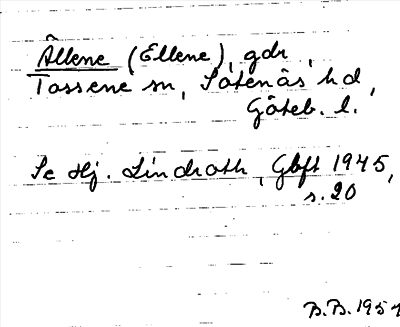 Ållene (Ellene), gdr,
Tossene sn, Sotenäs hd,
Göteb. l.
Se Hj. Lindroth, Gbft 1945,
s. 20
B.B. 1951